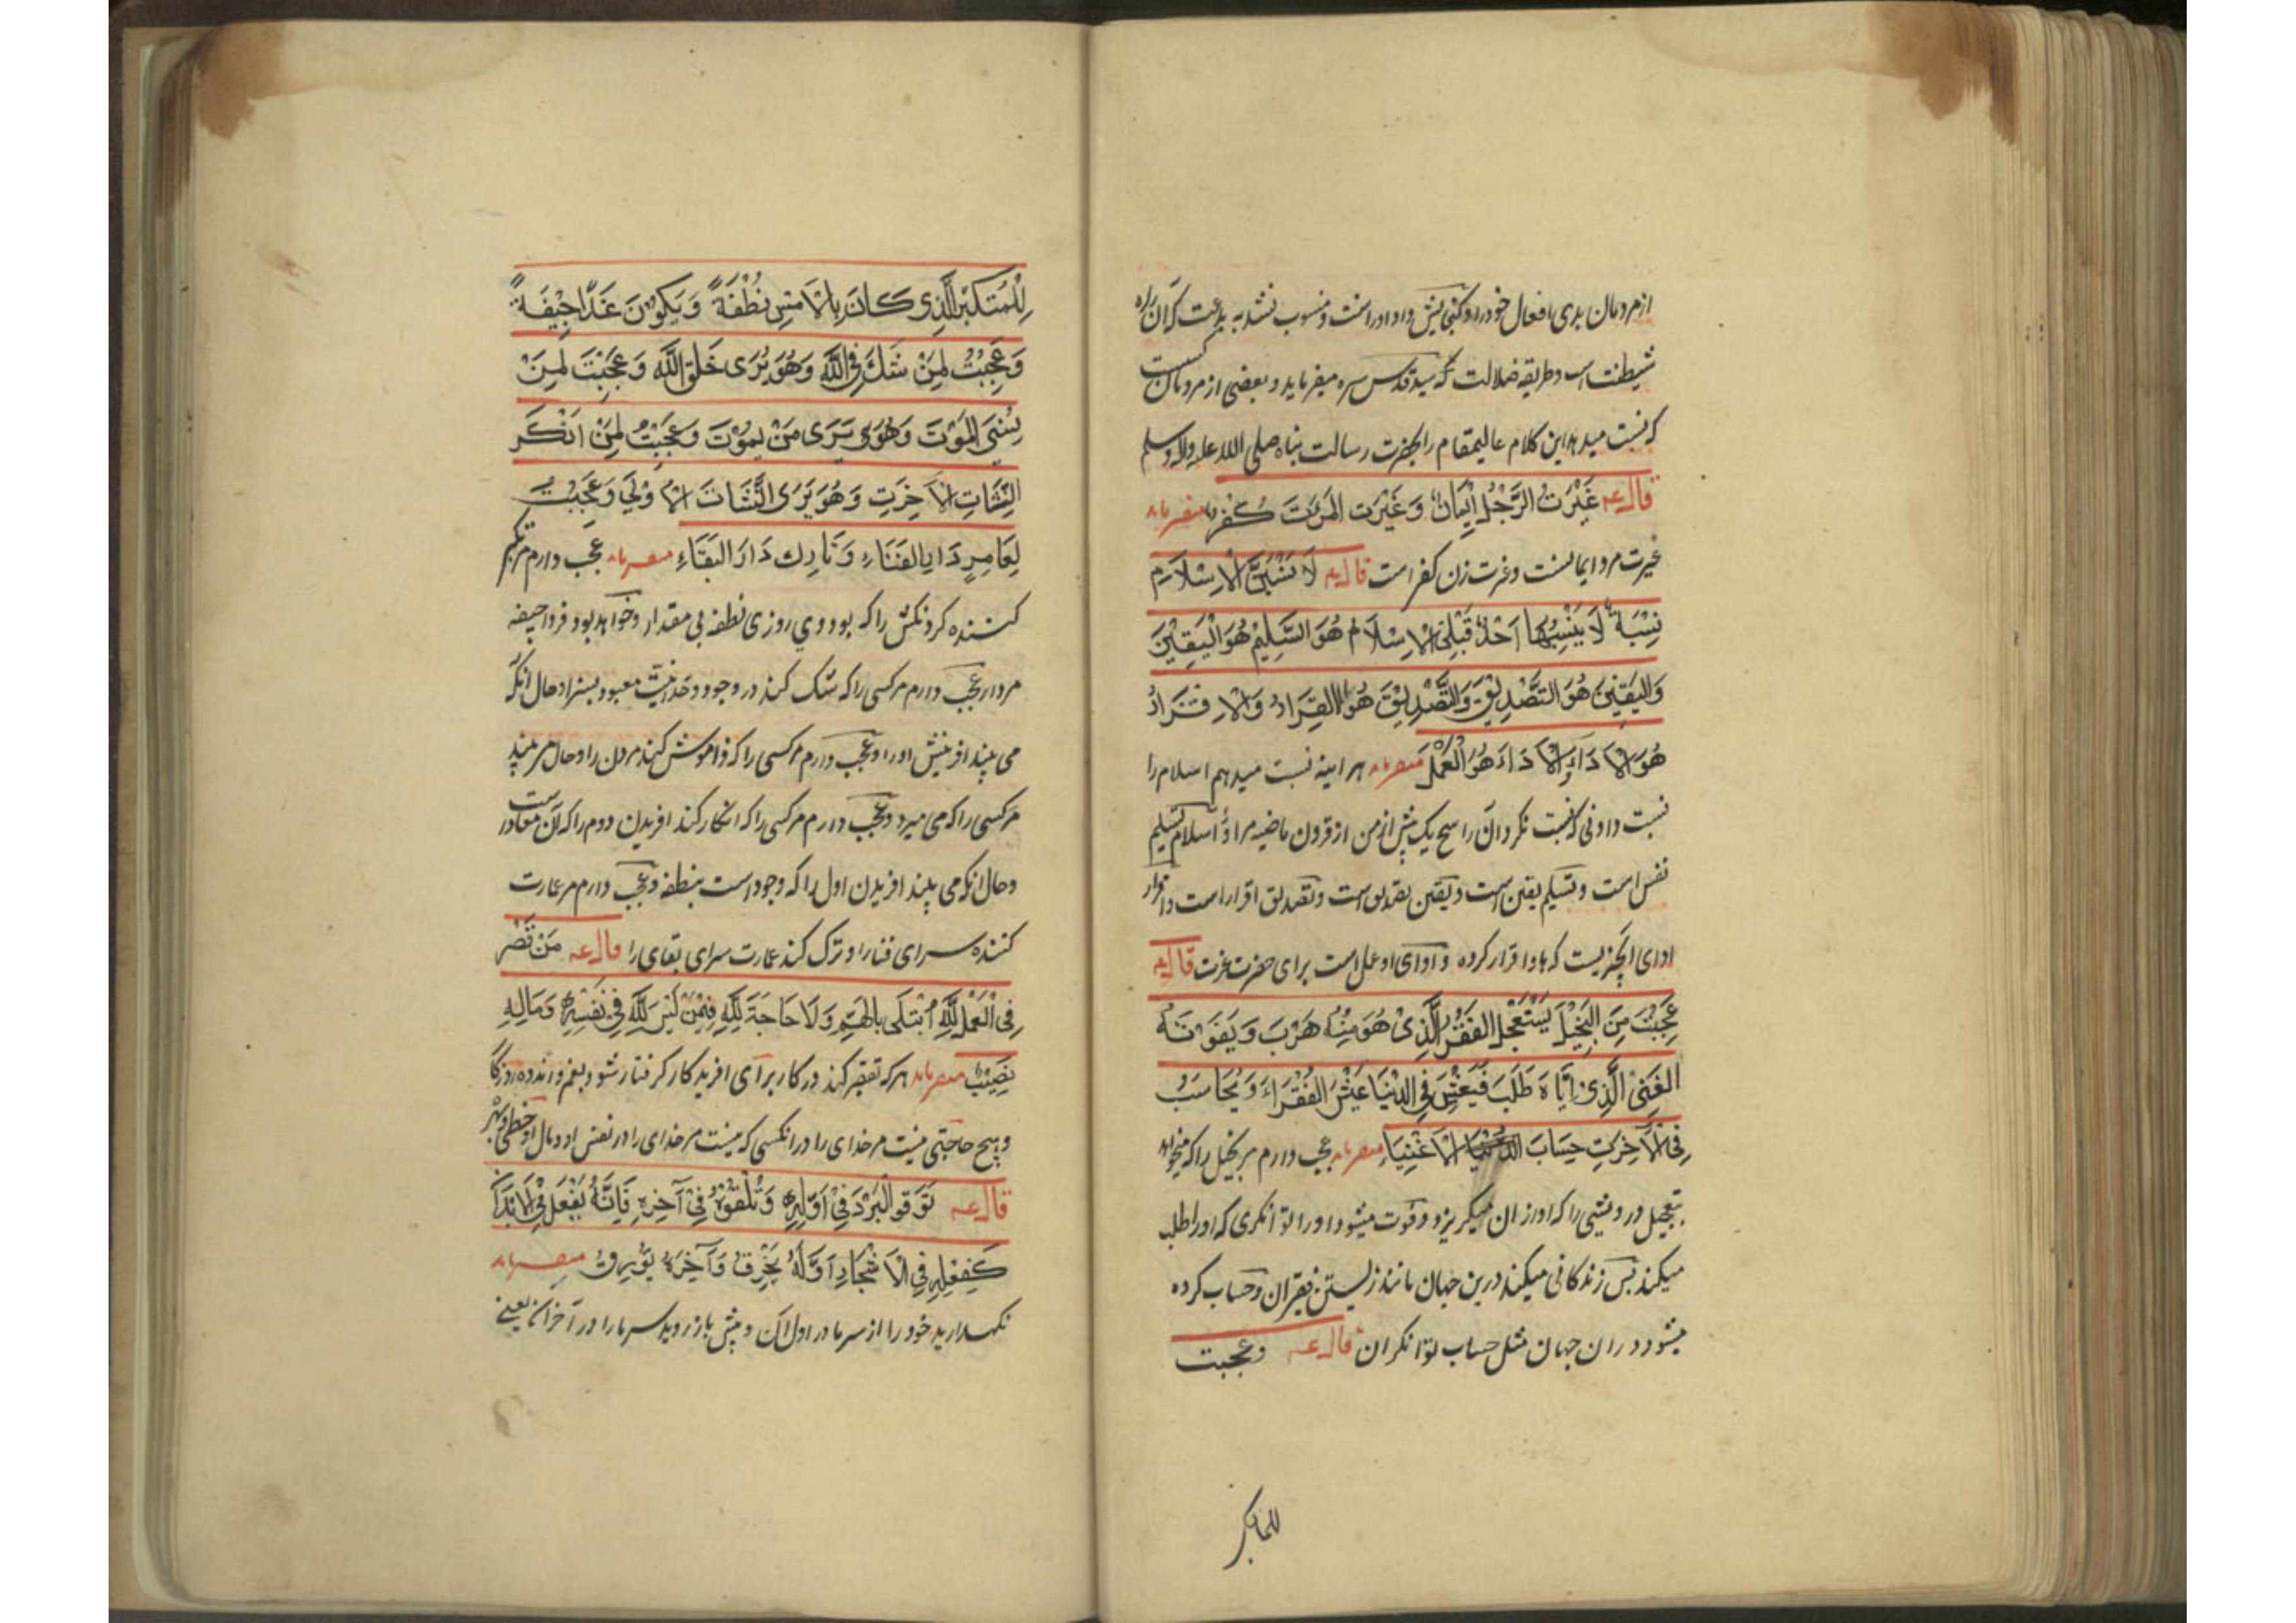 از مردمان بدی افعال خود را و کنجایش داد او راست و منسوب نشد به بدعت که آن راه
شیطنت است و طریقه ضلالت که سید قدس سره میفرماید و بعضی از مردمان
که نسبت میدهد این کلام عالیمقام را بحضرت رسالت پناه صلی الله علیه واله وسلم
قال عم غَیْرَتُ الرَّجُلِ اِیْمَانٌ وَغَیْرَت المَرْئَتِ کُفْر میفرماید
غیرت مرد ایمانست و غیرت زن کفر است قال عم لَاَنْسُبَنَّ الْاِسْلَامَ
نِسْبَةً لَا یَنْسِبُهَا اَحَدٌ قَبْلِی الْاِسْلَام هُوَ التَّسْلِیْم هُوَ الْیَقِیْنَ
وَالْیَقِیْنَ هُوَ التَصْدِیْقَ وَالتَّصْدِیْقَ هُوَ الْاِقْرَارُ وَالْاِقْرَارُ
هُوَ الْاَدَاءِ وَالْاَدَاءَ هُوَ الْعَمَلُ میفرماید هر اینه نسبت میدهم اسلام را
نسبت دادنی که نسبت نکرد آن را هیچ یک پیش از من از قرون ماضیه مراد از اسلام تسلیم
نفس است و تسلیم یقین است و یقین تصدیق است و تصدیق اقرار است و اقرار
ادای آنچیزیست که بدو اقرار کرده و ادای او عمل است برای حضرت عزت قال عم
عَجِبْتُ مِنَ الْبَخِیْلِ یَسْتَعْجِلُ الفَقْرَ الَّذِیْ هُوَ مِنْهُ هَرَبَ وَیَفُوْتَهُ
الْغِنٰی الَّذِیْ اِیَّاهُ طَلَبَ فَیَعِیْشَ فِی الدُّنْیَا عَیْشَ الْفُقَرَاءِ وَیُحَاسَبُ
فِی الْآخِرَتِ حِسَابَ الْاَغْنِیَاءِ میفرماید عجب دارم مر بخیل را که میخواهد
بتعجیل درویشی را که او از ان میگریزد و فوت میشود او را توانکری که او را طلب
میکند پس زندکانی میکند درین جهان مانند زیستن فقیران و حساب کرده
میشود در ان جهان مثل حساب توانکران قال عم وعجبت
للمتکبر
لِلْمُتَکَبِّرِ الَّذِی کَانَ بِالْاَمْسِ نُطْفَةً وَیَکُوْنَ غَدًا جِیْفَةً
وَعَجِبْتُ لِمَنْ شَكَّ فِی اللّٰهِ وَهُوَ یَرَی خَلْقَ اللّٰهِ وَعَجِبْتَ لِمَنْ
یَنْسَی الْمَوْتَ وَهُوَ یَرَی مَنْ یَمُوْتَ وَعَجِبْتُ لِمَنْ اَنْکَرَ
النَّشَاتِ الْآخِرَتِ وَهُوَ یَرَی النَّشَاتَ الْاُوْلٰی وَعَجِبْتُ
لِعَامِرٍ دَارِ الْفَنَاءِ وَتَارِك دَارَ الْبَقَاءِ میفرماید عجب دارم مر تکبر
کننده کردنکش را که بود وی روزی نطفه بی مقدار و خواهد بود فردا جیفه
مردار و عجب دارم مر کسی را که شک کند در وجود وحدانیت معبود بسزا و حال آنکه
می بیند آفرینش او را و عجب دارم مر کسی را که فراموش کند مردن را و حال مر بیند
مر کسی را که می میرد و عجب دارم مر کسی را که انکار کند افریدن دوم را که آن معاد است
و حال انکه می بیند افریدن اول را که وجود است بنطفه و عجب دارم مر عمارت
کننده سرای فنا را و ترک کند عمارت سرای بقای را قال عم مَنْ قَصَّرَ
فِی الْعَمَلِ لِلّٰهِ اُبْتُلَی بِالْهَمِّ وَلَا حَاجَةَ لِلّٰهِ فِیْمَنْ لَیْسَ لِلّٰهِ فِیْ نَفْسِهٖ وَمَالِهِ
نَصِیْبٌ میفرماید هر که تقصیر کند در کار برای افریدکار کرفتار شود بغم و اندوه روزکار
و هیچ حاجتی نیست مر خدای را در انکسی که نیست مر خدای را در نفس او و مال او حظی و بهره
قال عم تَوَقَّو الْبَرْدَ فِیْ اَوَّلِهٖ وَتَلَقَّوْهُ فِیْ آخِرِهٖ فَاِنَّهُ یَفْعَلُ فِی الْاَبْدَانِ
کَفِعْلِهٖ فِی الْاَشْجَارِ اَوَّلُهُ یُحْرِقُ وَآخِرَهُ یُوْرِقُ میفرماید
نکهدارید خود را از سرما در اول آن و پیش باز روید سرما را در آخر آن یعنی